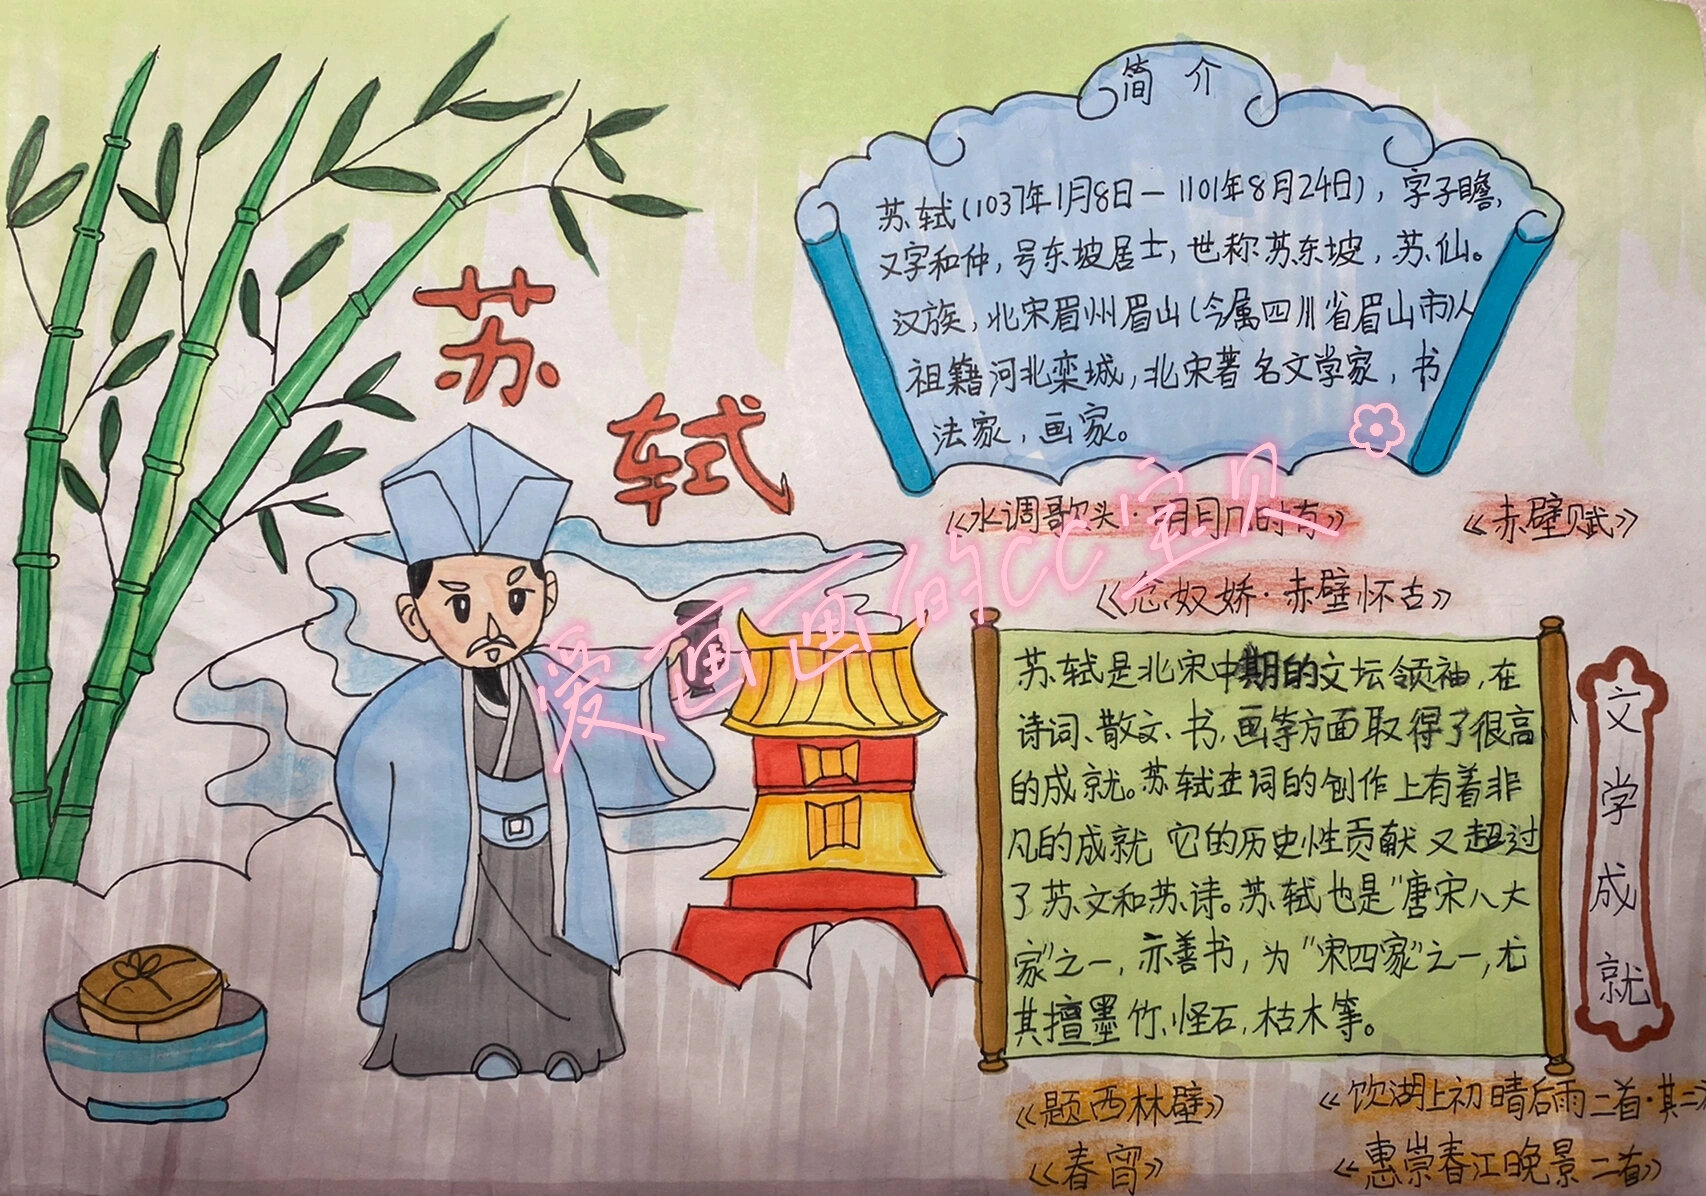 苏轼
简介
苏轼(1037年1月8日—1101年8月24日)，字子瞻，
又字和仲，号东坡居士，世称苏东坡，苏仙。
汉族，北宋眉州眉山(今属四川省眉山市)人
祖籍河北栾城，北宋著名文学家，书
法家，画家。
《水调歌头·明月几时有》
《赤壁赋》
《念奴娇·赤壁怀古》
爱画画的CC宝贝
苏轼是北宋中期的文坛领袖，在
诗词、散文、书、画等方面取得了很高
的成就。苏轼在词的创作上有着非
凡的成就 它的历史性贡献又超过
了苏文和苏诗。苏轼也是“唐宋八大
家”之一，亦善书，为“宋四家”之一，尤
其擅墨竹、怪石，枯木等。
文学成就
《题西林壁》
《饮湖上初晴后雨二首·其二
《春宵》
《惠崇春江晚景二首》